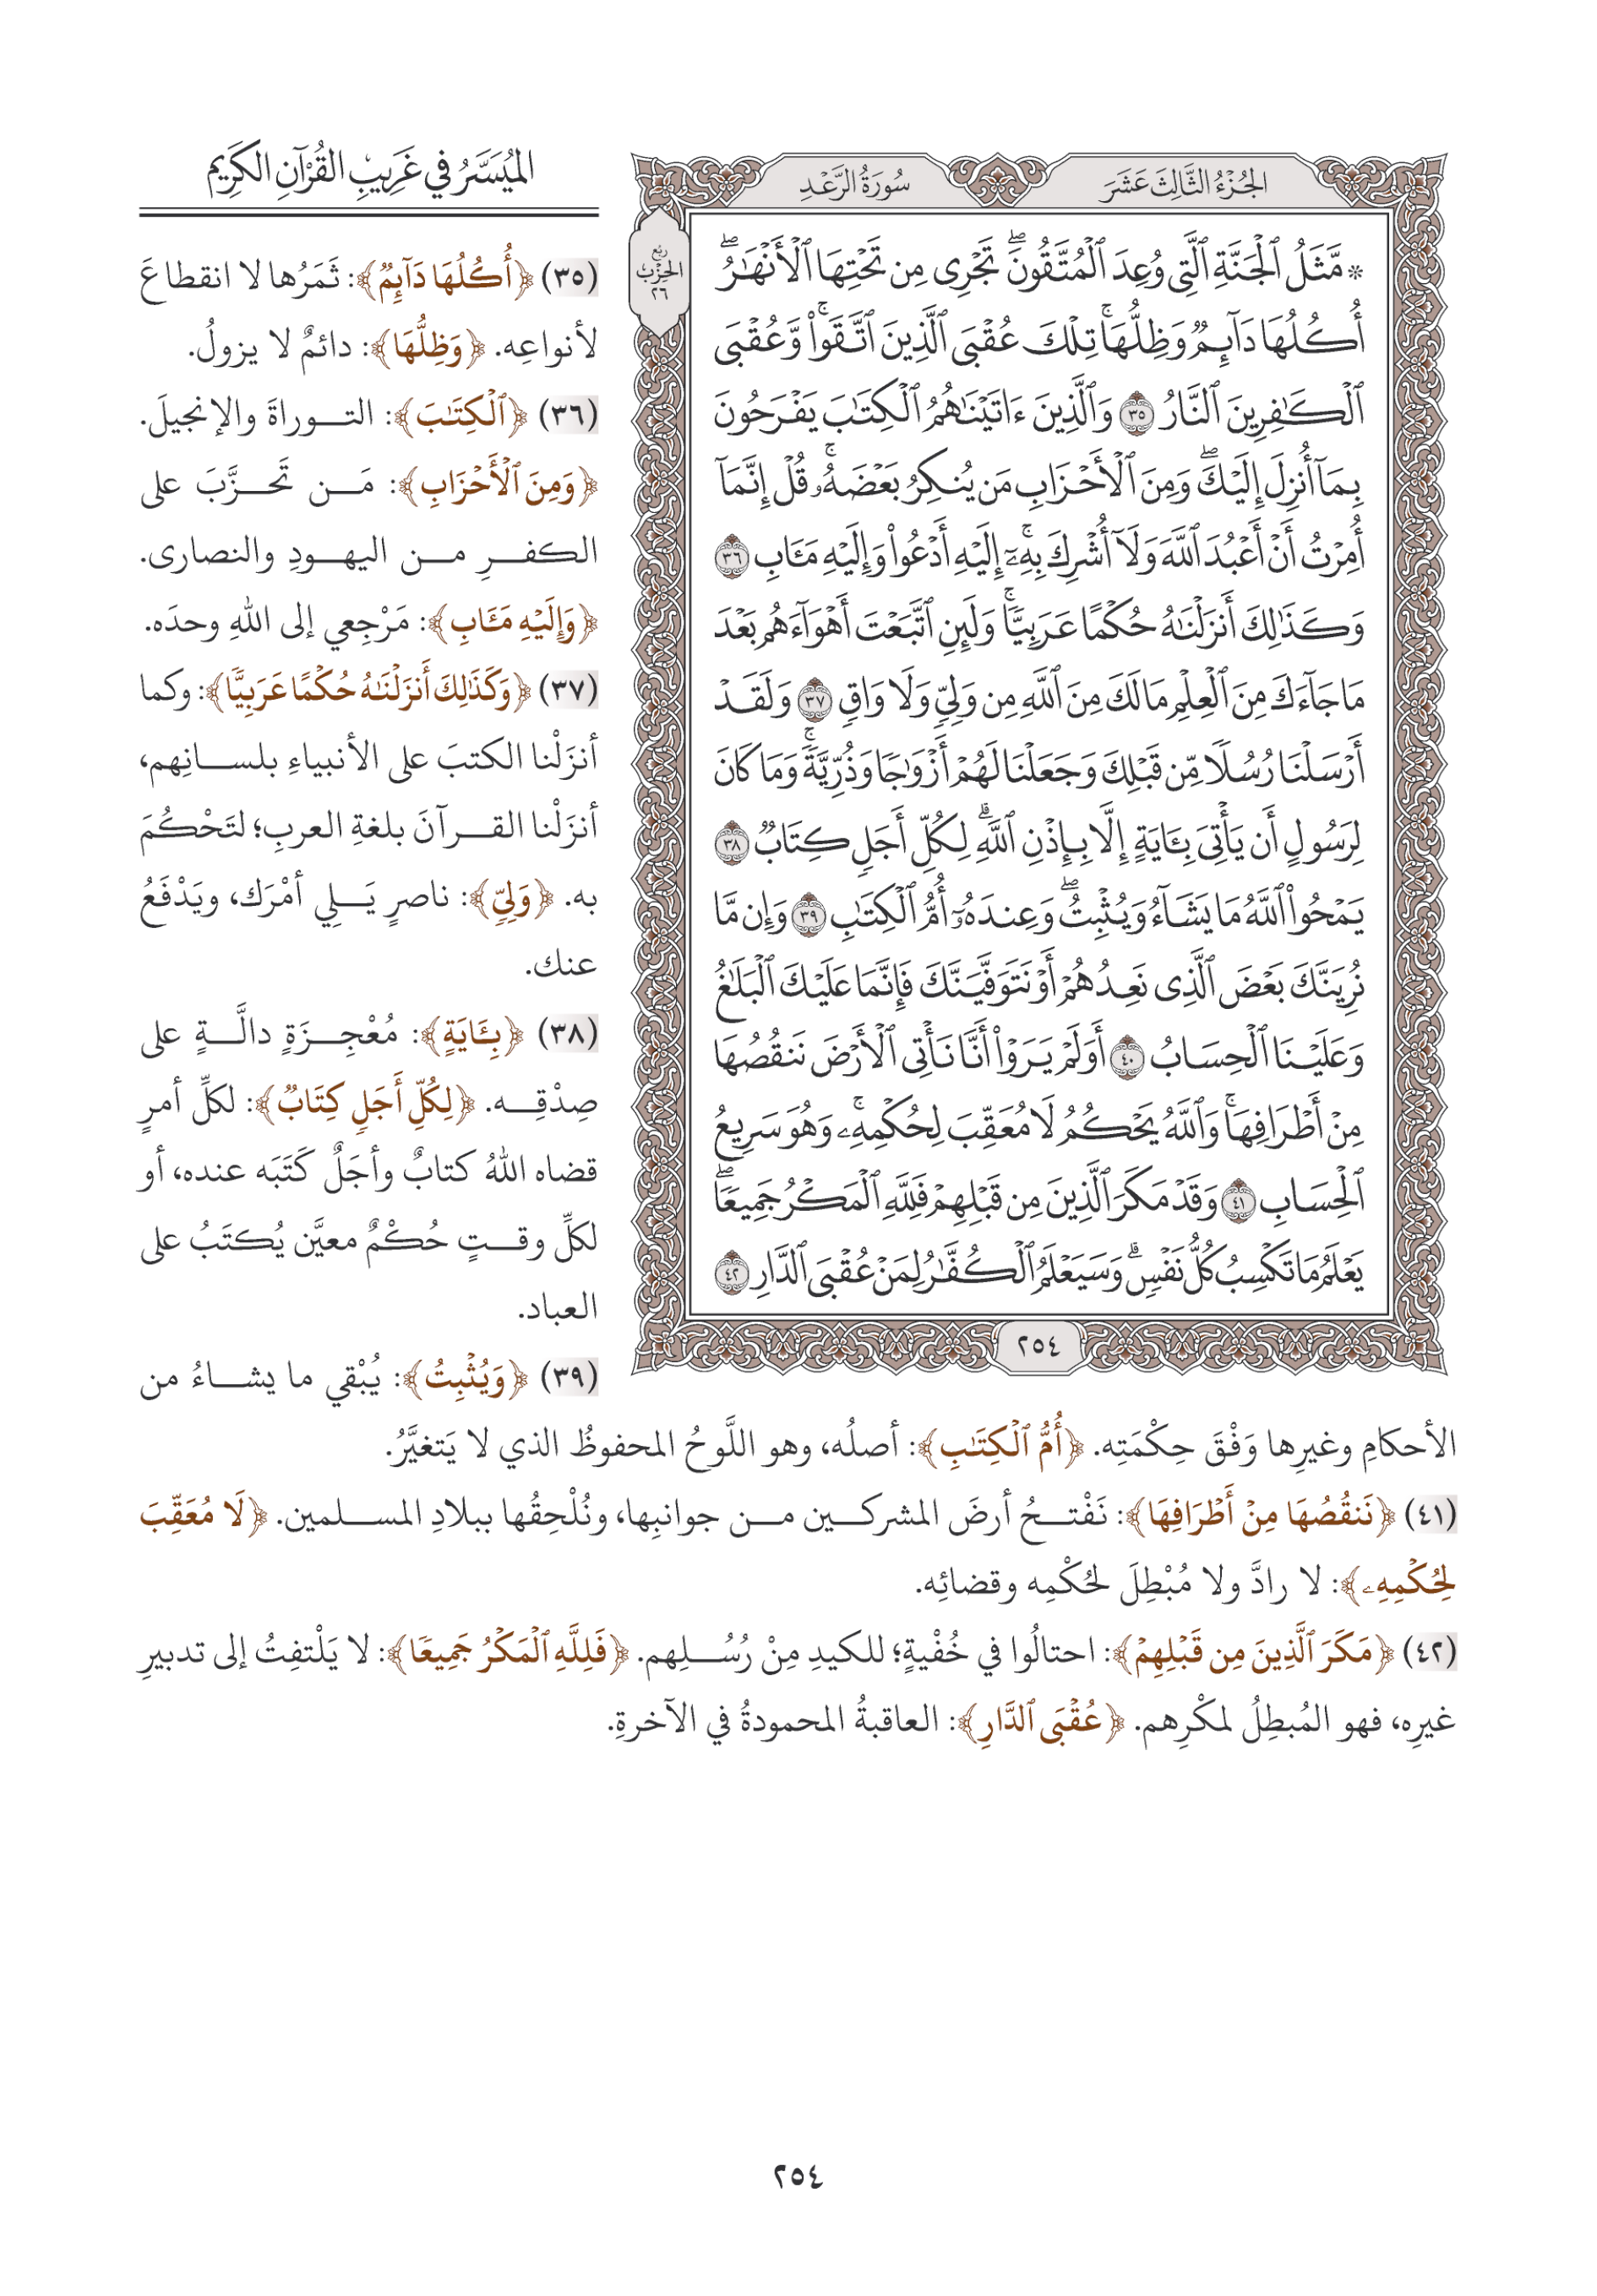 الجُزْءُ الثَّالِثَ عَشَرَ
سُورَةُ الرَّعْدِ
رُبع
الحِزْب
٢٦
۞ مَّثَلُ ٱلْجَنَّةِ ٱلَّتِى وُعِدَ ٱلْمُتَّقُونَۖ تَجْرِى مِن تَحْتِهَا ٱلْأَنْهَـٰرُۖ
أُكُلُهَا دَآئِمٌ وَظِلُّهَاۚ تِلْكَ عُقْبَى ٱلَّذِينَ ٱتَّقَوا۟ۚ وَّعُقْبَى
ٱلْكَـٰفِرِينَ ٱلنَّارُ ٣٥ وَٱلَّذِينَ ءَاتَيْنَـٰهُمُ ٱلْكِتَـٰبَ يَفْرَحُونَ
بِمَآ أُنزِلَ إِلَيْكَۖ وَمِنَ ٱلْأَحْزَابِ مَن يُنكِرُ بَعْضَهُۥۚ قُلْ إِنَّمَآ
أُمِرْتُ أَنْ أَعْبُدَ ٱللَّهَ وَلَآ أُشْرِكَ بِهِۦٓۚ إِلَيْهِ أَدْعُوا۟ وَإِلَيْهِ مَـَٔابِ ٣٦
وَكَذَٰلِكَ أَنزَلْنَـٰهُ حُكْمًا عَرَبِيًّاۚ وَلَئِنِ ٱتَّبَعْتَ أَهْوَآءَهُم بَعْدَ
مَا جَآءَكَ مِنَ ٱلْعِلْمِ مَا لَكَ مِنَ ٱللَّهِ مِن وَلِىٍّ وَلَا وَاقٍ ٣٧ وَلَقَدْ
أَرْسَلْنَا رُسُلًا مِّن قَبْلِكَ وَجَعَلْنَا لَهُمْ أَزْوَٰجًا وَذُرِّيَّةًۚ وَمَا كَانَ
لِرَسُولٍ أَن يَأْتِىَ بِـَٔايَةٍ إِلَّا بِإِذْنِ ٱللَّهِۗ لِكُلِّ أَجَلٍ كِتَابٌ ٣٨
يَمْحُوا۟ ٱللَّهُ مَا يَشَآءُ وَيُثْبِتُۖ وَعِندَهُۥٓ أُمُّ ٱلْكِتَـٰبِ ٣٩ وَإِن مَّا
نُرِيَنَّكَ بَعْضَ ٱلَّذِى نَعِدُهُمْ أَوْ نَتَوَفَّيَنَّكَ فَإِنَّمَا عَلَيْكَ ٱلْبَلَـٰغُ
وَعَلَيْنَا ٱلْحِسَابُ ٤٠ أَوَلَمْ يَرَوْا۟ أَنَّا نَأْتِى ٱلْأَرْضَ نَنقُصُهَا
مِنْ أَطْرَافِهَاۚ وَٱللَّهُ يَحْكُمُ لَا مُعَقِّبَ لِحُكْمِهِۦۚ وَهُوَ سَرِيعُ
ٱلْحِسَابِ ٤١ وَقَدْ مَكَرَ ٱلَّذِينَ مِن قَبْلِهِمْ فَلِلَّهِ ٱلْمَكْرُ جَمِيعًاۖ
يَعْلَمُ مَا تَكْسِبُ كُلُّ نَفْسٍۗ وَسَيَعْلَمُ ٱلْكُفَّـٰرُ لِمَنْ عُقْبَى ٱلدَّارِ ٤٢
٢٥٤
المُيَسَّرُ في غَرِيبِ القُرْآنِ الكَرِيم
(٣٥) ﴿أُكُلُهَا دَآئِمٌ﴾: ثَمَرُها لا انقطاعَ
لأنواعِه. ﴿وَظِلُّهَا﴾: دائمٌ لا يزولُ.
(٣٦) ﴿ٱلْكِتَـٰبَ﴾: التوراةَ والإنجيلَ.
﴿وَمِنَ ٱلْأَحْزَابِ﴾: مَن تَحزَّبَ على
الكفرِ من اليهودِ والنصارى.
﴿وَإِلَيْهِ مَـَٔابِ﴾: مَرْجِعي إلى اللهِ وحدَه.
(٣٧) ﴿وَكَذَٰلِكَ أَنزَلْنَـٰهُ حُكْمًا عَرَبِيًّا﴾: وكما
أنزَلْنا الكتبَ على الأنبياءِ بلسانِهم،
أنزَلْنا القرآنَ بلغةِ العربِ؛ لتَحْكُمَ
به. ﴿وَلِىٍّ﴾: ناصرٍ يَلِي أمْرَك، ويَدْفَعُ
عنك.
(٣٨) ﴿بِـَٔايَةٍ﴾: مُعْجِزَةٍ دالَّةٍ على
صِدْقِه. ﴿لِكُلِّ أَجَلٍ كِتَابٌ﴾: لكلِّ أمرٍ
قضاه اللهُ كتابٌ وأجَلٌ كَتَبَه عنده، أو
لكلِّ وقتٍ حُكْمٌ معيَّن يُكتَبُ على
العباد.
(٣٩) ﴿وَيُثْبِتُ﴾: يُبْقي ما يشاءُ من
الأحكامِ وغيرِها وَفْقَ حِكْمَتِه. ﴿أُمُّ ٱلْكِتَـٰبِ﴾: أصلُه، وهو اللَّوحُ المحفوظُ الذي لا يَتغيَّرُ.
(٤١) ﴿نَنقُصُهَا مِنْ أَطْرَافِهَا﴾: نَفْتحُ أرضَ المشركين من جوانبِها، ونُلْحِقُها ببلادِ المسلمين. ﴿لَا مُعَقِّبَ
لِحُكْمِهِۦ﴾: لا رادَّ ولا مُبْطِلَ لحُكْمِه وقضائِه.
(٤٢) ﴿مَكَرَ ٱلَّذِينَ مِن قَبْلِهِمْ﴾: احتالُوا في خُفْيةٍ؛ للكيدِ مِنْ رُسُلِهم. ﴿فَلِلَّهِ ٱلْمَكْرُ جَمِيعًا﴾: لا يَلْتفِتُ إلى تدبيرِ
غيرِه، فهو المُبطِلُ لمكْرِهم. ﴿عُقْبَى ٱلدَّارِ﴾: العاقبةُ المحمودةُ في الآخرةِ.
٢٥٤